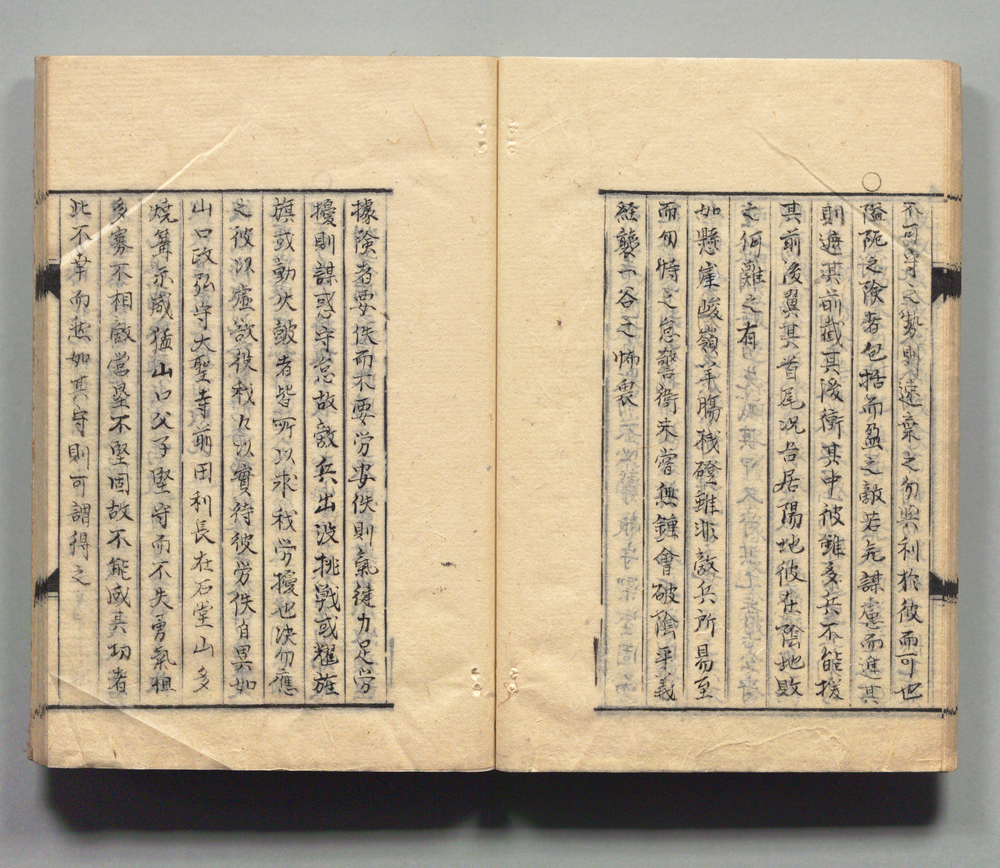 不可守之勢則速棄之勿與利於彼而可也
隘阨之険者包括而盈之敵若先謀慮而進其
則遮其前截其後衝其中彼雖多兵不能援
其前後翼其首尾况吾居陽地彼在陰地敗
之何難之有
如懸崖峻嶺羊膓棧磴雖非敵兵所易至
而勿恃之怠警衛未嘗無鍾會破陰平義
経襲一谷之怖畏
據険者要佚而不要労安佚則氣健力足労
擾則謀惑守怠故敵兵出没挑戦或耀旌
旗或動火鼓者皆所以求我労擾也决勿應
之彼以虚欲役我々以實待彼労佚自異如
山口政弘守大聖寺前田利長在石堂山多
焼篝示威猛山口父子堅守而不失勇氣徂
多寡不相敵営塁不堅固故不能成其功者
此不幸而然如其守則可謂得之